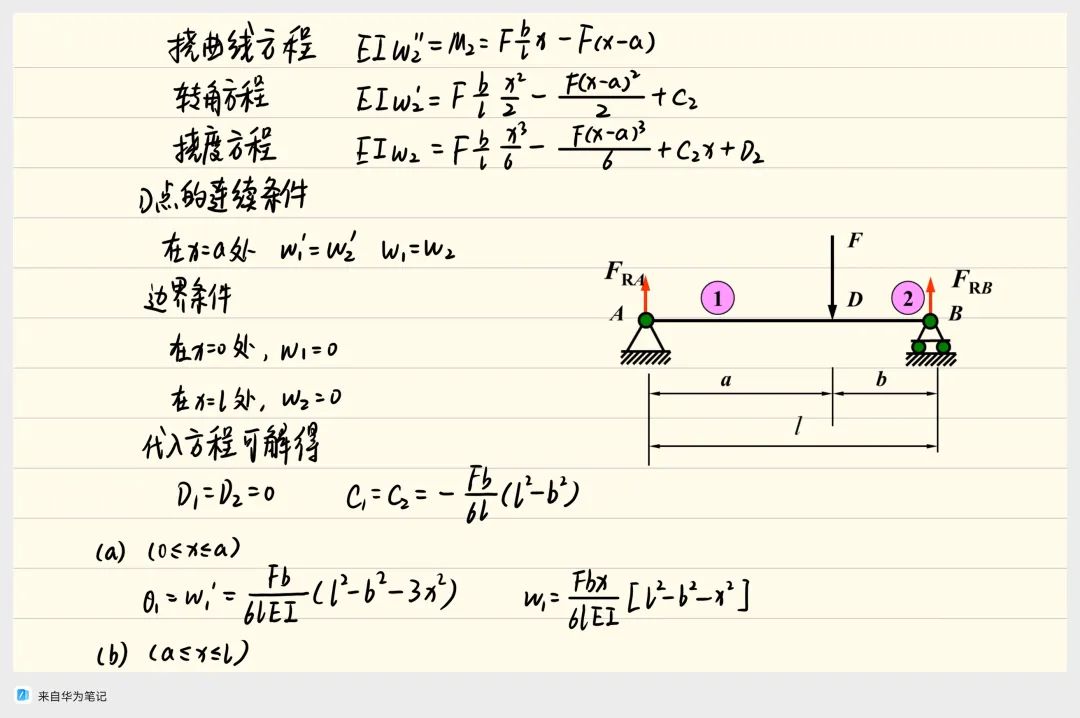 挠曲线方程 EIw₂'' = M₂ = F b/l x − F(x−a)
转角方程 EIw₂' = F b/l x²/2 − F(x−a)²/2 + C₂
挠度方程 EIw₂ = F b/l x³/6 − F(x−a)³/6 + C₂x + D₂
D点的连续条件
在x=a处 w₁'=w₂' w₁=w₂
边界条件
在x=0处, w₁=0
在x=l处, w₂=0
代入方程可解得
D₁=D₂=0 C₁=C₂= − Fb/6l (l²−b²)
(a) (0≤x≤a)
θ₁=w₁'= Fb/6lEI (l²−b²−3x²) w₁= Fbx/6lEI [l²−b²−x²]
(b) (a≤x≤l)
F
F_RA 1 2 F_RB
A D B
a b
l
来自华为笔记